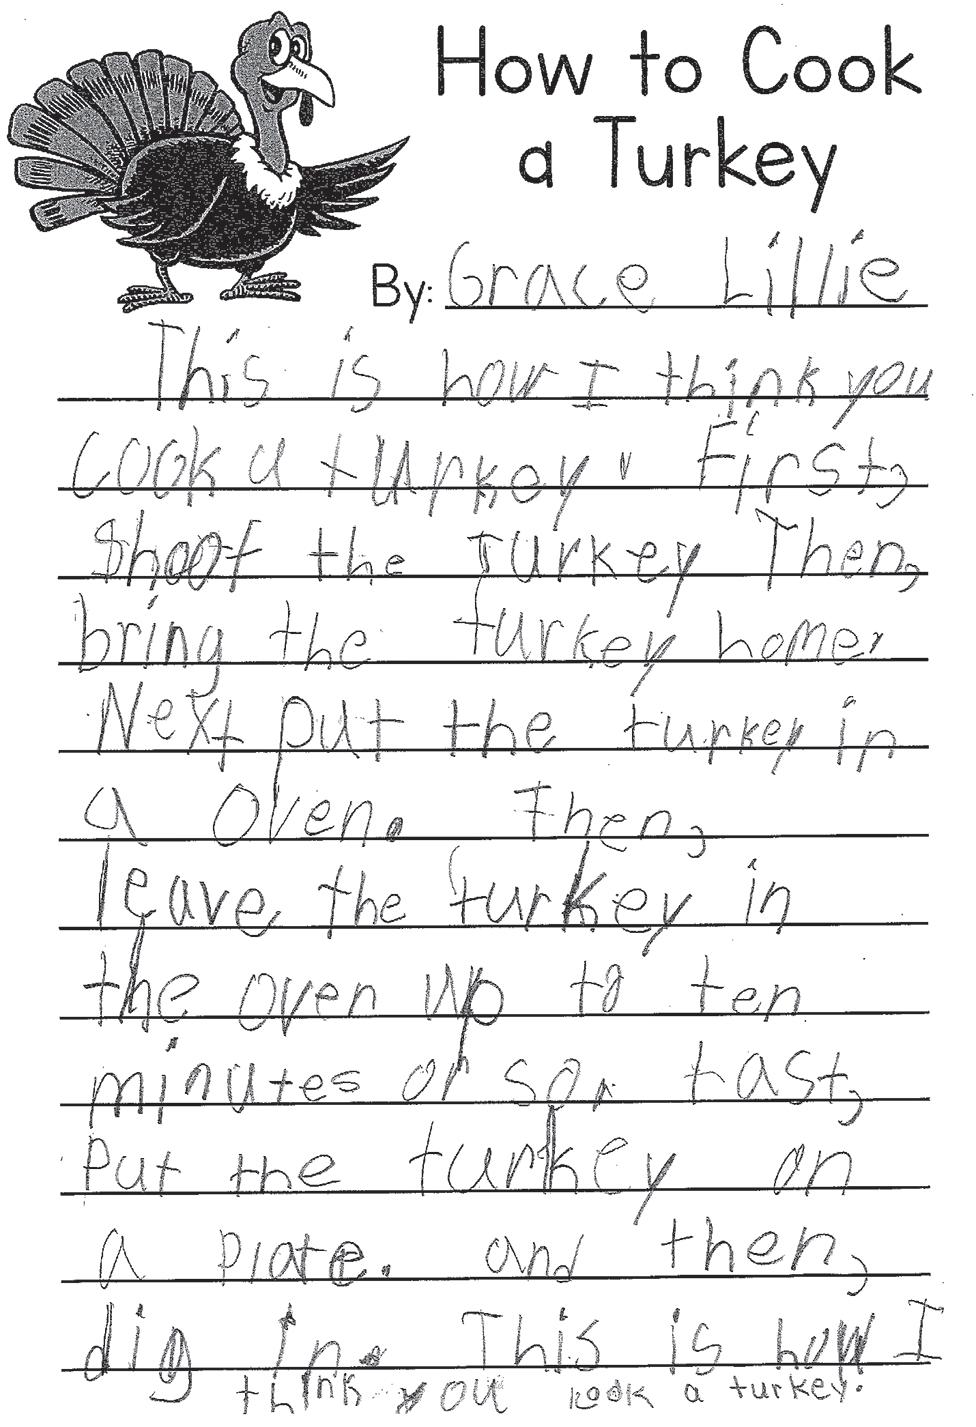 How to Cook
a Turkey
By: Grace Lillie
This is how I think you
cook a turkey. First,
Shoot the turkey Then,
bring the turkey home.
Next put the turkey in
a oven. Then,
leave the turkey in
the oven up to ten
minutes or so. tast,
Put the turkey on
a plate. and then,
dig in. This is how I
think you cook a turkey.